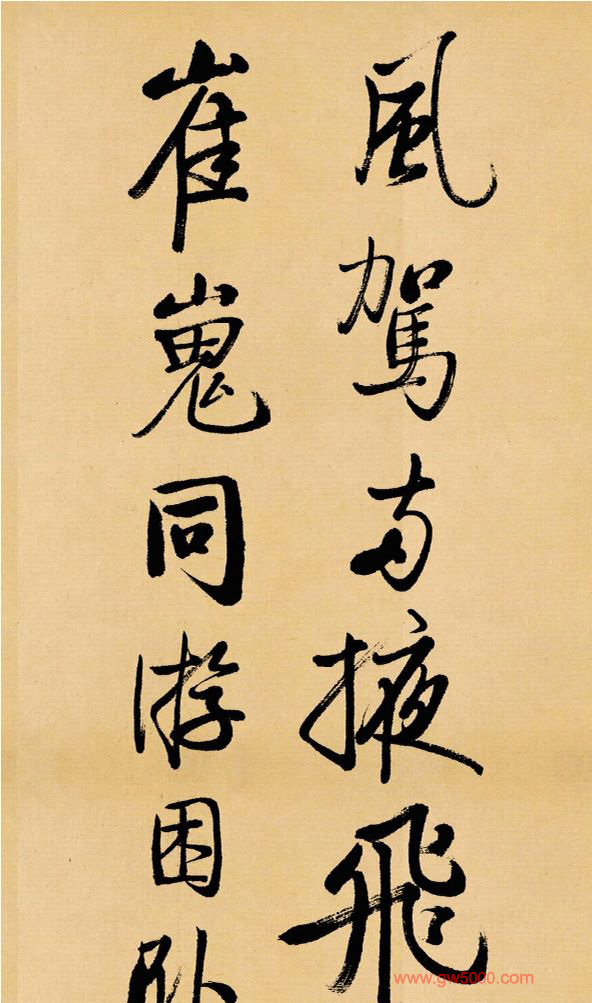 風駕兩掖飛
崔嵬同游困卧
www.gw5000.com